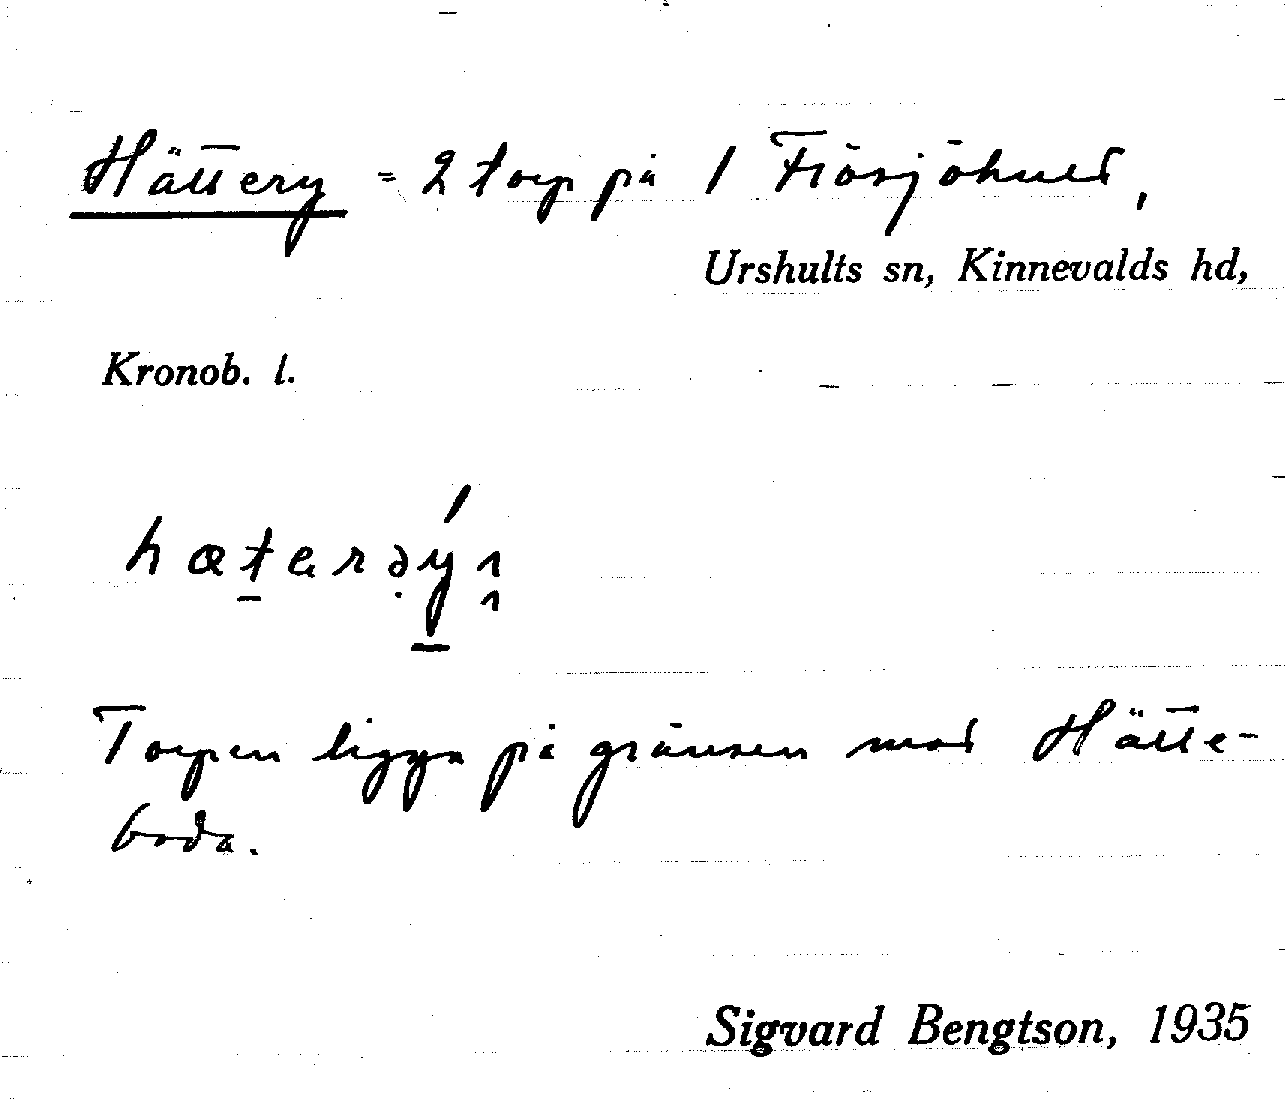 Hättery = 2 torp på 1 Flösjöhult,
Urshults sn, Kinnevalds hd,
Kronob. l.
Torpen ligga på gränsen mot Hätte-
boda.
Sigvard Bengtson, 1935